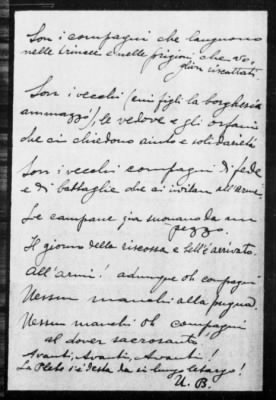 Son i compagni che languono
nelle trincee e nelle prigioni che vo-
glion riscattati.
Son i vecchi (cui figli la borghesia
ammazzò), le vedove e gli orfani
che ci chiedono aiuto e solidarietà
Son i vecchi compagni di fede
e di battaglie che ci invitan all'armi.
Le campane già suonano da un
pezzo.
Il giorno della riscossa è bell'è arrivato.
All'armi! adunque oh compagni
Nessun manchi alla pugna.
Nessun manchi oh compagni
al dover sacrosanto,
Avanti, Avanti, Avanti!
La Plebe s'è desta da un lungo letargo!
U. B.